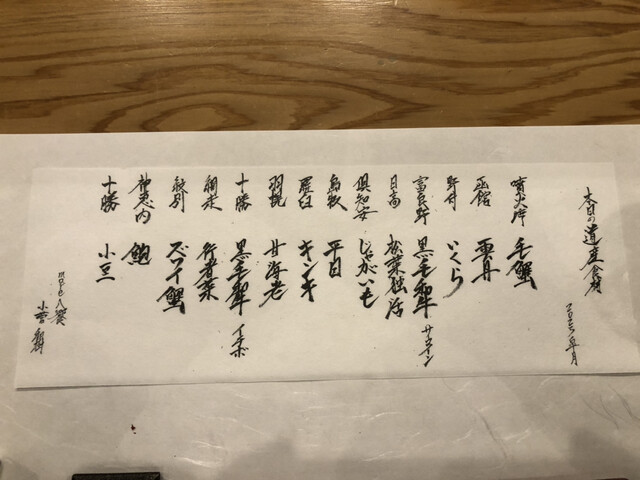 本日の道産食材
噴火湾 毛蟹
函館 雲丹
野付 いくら
富良野 黒毛和牛 サーロイン
日高 松葉独活
倶知安 じゃがいも
島牧 平目
羅臼 キンキ
羽幌 甘海老
十勝 黒毛和牛 イチボ
網走 行者菜
紋別 ズワイ蟹
静内 鮑
十勝 小豆